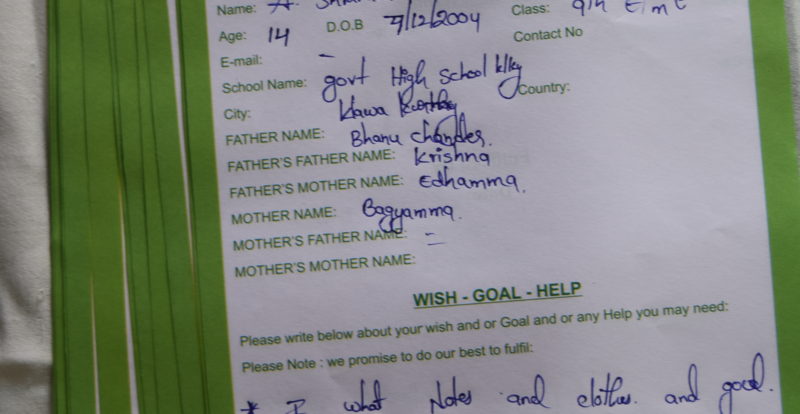 Name: A.
Age: 14 D.O.B 7/12/2004 Class: 9th E/m C
E-mail: - Contact No
School Name: govt High school klky Country:
City: klawa
FATHER NAME: Bhanu chander.
FATHER'S FATHER NAME: Krishna
FATHER'S MOTHER NAME: Edhamma.
MOTHER NAME: Bagyamma.
MOTHER'S FATHER NAME: =
MOTHER'S MOTHER NAME:
WISH - GOAL - HELP
Please write below about your wish and or Goal and or any Help you may need:
Please Note : we promise to do our best to fulfil:
* I what Notes and clothes. and good.